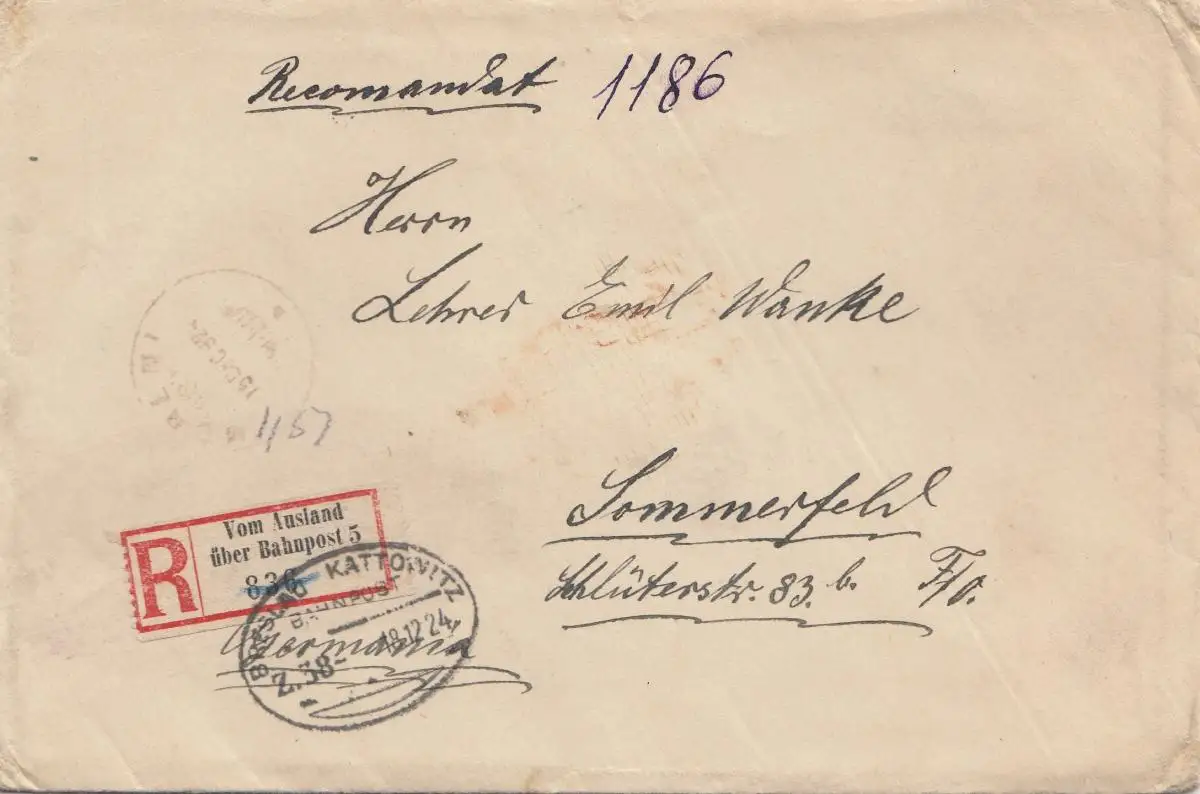 Recomandat 1186
Herrn
Lehrer Emil Wanke
15 DEC 92
1157
Sommerfeld
Schlüterstr. 83.b. F/O.
R
Vom Ausland
über Bahnpost 5
836
Germania
BRESLAU KATTOWITZ
BAHNPOST
Z.38 18.12.24